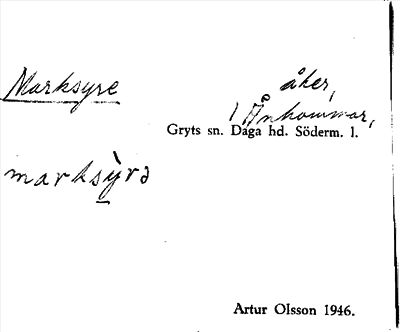 Marksyre
åker,
1 Ånhammar,
Gryts sn. Daga hd. Söderm. l.
marksỳ̱rə
Artur Olsson 1946.